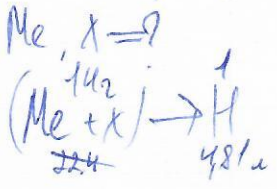 Me, X = ?
14г 1
(Me + X) → H
22.4 4,81 л